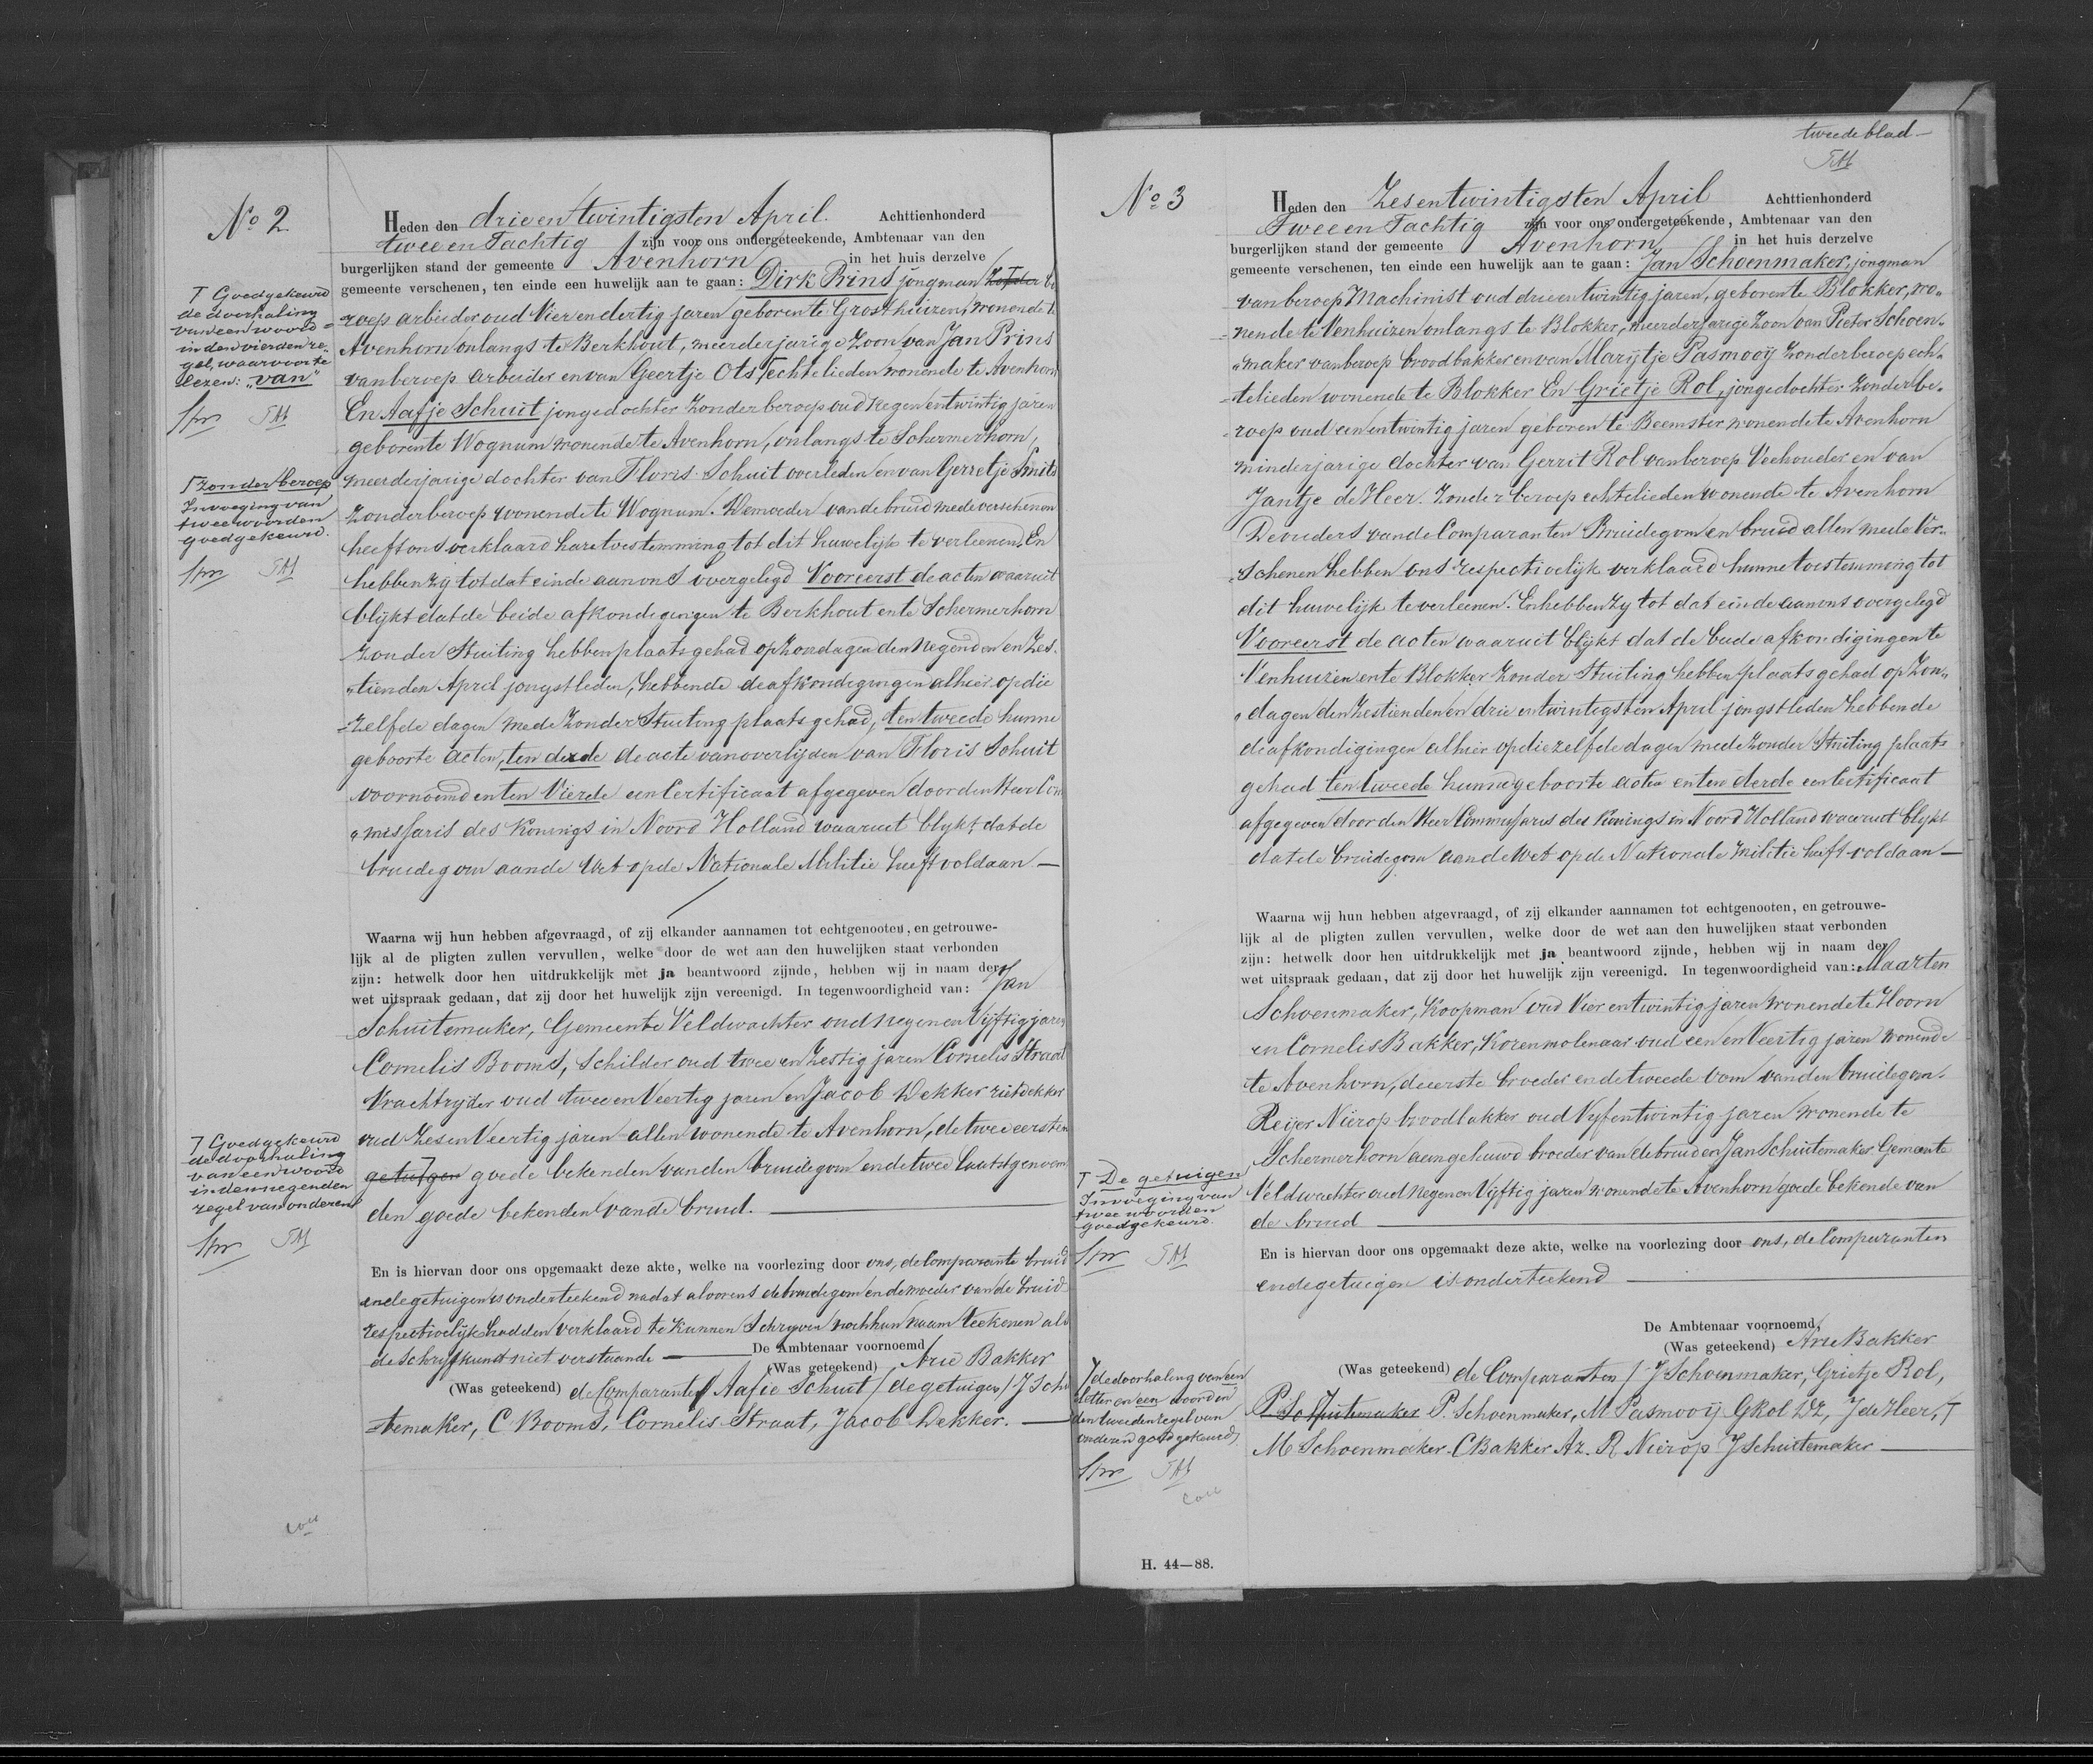 No 2
Heden den drie en twintigsten April. Achttienhonderd
twee en Tachtig zijn voor ons ondergeteekende, Ambtenaar van den
burgerlijken stand der gemeente Avenhorn in het huis derzelve
gemeente verschenen, ten einde een huwelijk aan te gaan: Dirk Prins jongman be
roep arbeider oud Vier en dertig jaren geboren te Grosthuizen, wonende te
Avenhorn onlangs te Berkhout, meerderjarige Zoon van Jan Prins
van beroep arbeider en van Geertje Ots echtelieden wonende te Avenhorn
En Aafje Schuit jongedochter Zonder beroep oud negen en twintig jaren
geboren te Wognum wonende te Avenhorn, onlangs te Schermerhorn,
meerderjarige dochter van Floris Schuit overleden en van Gerretje Smits
Zonder beroep wonende te Wognum. De moeder van de bruid mede verschenen
heeft ons verklaard hare toestemming tot dit huwelijk te verleenen. En
hebben zy tot dat einde aan ons overgelegd Vooreerst de acten waaruit
blijkt dat de beide afkondegingen te Berkhout en te Schermerhorn
zonder Stuiting hebben plaats gehad op Zondagen den negenden en Zes-
„tienden April jongstleden, hebbende de afkondegingen alhier op die
=zelfde dagen mede Zonder Stuiting plaats gehad, ten tweede hunne
geboorte acten, ten derde de acte van overlijden van Floris Schuit
voornoemd en ten Vierde een Certificaat afgegeven door den Heer Com
„missaris des Konings in Noord Holland waaruit blykt dat de
bruidegom aan de Wet op de Nationale Militie heeft voldaan —
Waarna wij hun hebben afgevraagd, of zij elkander aannamen tot echtgenooten, en getrouwe-
lijk al de pligten zullen vervullen, welke door de wet aan den huwelijken staat verbonden
zijn: hetwelk door hen uitdrukkelijk met ja beantwoord zijnde, hebben wij in naam der
wet uitspraak gedaan, dat zij door het huwelijk zijn vereenigd. In tegenwoordigheid van: Jan
Schuitemaker, Gemeente Veldwachter oud negen en Vijftig jaren
Cornelis Booms, Schilder oud twee en Zestig jaren Cornelis Straat
Vrachtryder oud twee en Veertig jaren en Jacob Dekker rietdekker
oud Zes en Veertig jaren allen wonende te Avenhorn, de twee eersten
getuigen goede bekenden van den bruidegom en de twee laatstgenoem
den goede bekenden van de bruid. —
En is hiervan door ons opgemaakt deze akte, welke na voorlezing door ons, de Comparante bruid
en de getuigen is onderteekend nadat alvorens de bruidegom en de moeder van de bruid
respectivelijk hadden verklaard te kunnen Schryven noch hun naam teekenen als
de Schryfkunst niet verstaande — De Ambtenaar voornoemd
(Was geteekend) Arie Bakker
(Was geteekend) de Comparante / Aafie Schuit / de getuigen / J Schu
=temaker, C Booms, Cornelis Straat, Jacob Dekker. —
T Goedgekeurd
de doorhaling
van een woord
in den vierden re-
gel, waarvoor te
lezen: „van"
T zonder beroep
Invoeging van
twee woorden
goedgekeurd.
T Goedgekeurd
de doorhaling
van een woord
in den negenden
regel van onderen
tweede blad —
No 3
Heden den Zes en twintigsten April Achttienhonderd
Twee en Tachtig zijn voor ons ondergeteekende, Ambtenaar van den
burgerlijken stand der gemeente Avenhorn in het huis derzelve
gemeente verschenen, ten einde een huwelijk aan te gaan: Jan Schoenmaker, jongman
van beroep Machinist oud drie en twintig jaren, geboren te Blokker, wo„
=nende te Venhuizen onlangs te Blokker, meerderjarige Zoon van Pieter Schoen„
„maker van beroep broodbakker en van Marijtje Pasmooij Zonder beroep ech„
=telieden wonende te Blokker En Grietje Rol, jongedochter Zonder be„
=roep oud een en twintig jaren geboren te Beemster wonende te Avenhorn
minderjarige dochter van Gerrit Rol van beroep Veehouder en van
Jantje de Heer. Zonder beroep echtelieden wonende te Avenhorn
De ouders van de Comparanten Bruidegom en bruid allen mede Ver„
„schenen hebben ons respectivelijk verklaard hunne toestemming tot
dit huwelijk te verleenen. En hebben zy tot dat einde aan ons overgelegd
Vooreerst de acten waaruit blijkt dat de beide afkondigingen te
Venhuizen en te Blokker Zonder Stuiting hebben plaats gehad op Zon„
„dagen den Zestienden en drie en twintigsten April jongstleden hebbende
de afkondigingen alhier op diezelfde dagen mede Zonder Stuiting plaats
gehad ten tweede hunne geboorte acten en ten derde een Certificaat
afgegeven door den Heer Commissaris des Konings in Noord Holland waaruit blijkt
dat de bruidegom aan de Wet op de Nationale Militie heeft voldaan —
Waarna wij hun hebben afgevraagd, of zij elkander aannamen tot echtgenooten, en getrouwe-
lijk al de pligten zullen vervullen, welke door de wet aan den huwelijken staat verbonden
zijn: hetwelk door hen uitdrukkelijk met ja beantwoord zijnde, hebben wij in naam der
wet uitspraak gedaan, dat zij door het huwelijk zijn vereenigd. In tegenwoordigheid van: Maarten
Schoenmaker, Koopman oud Vier en twintig jaren wonende te Hoorn
en Cornelis Bakker, Korenmolenaar oud een en Veertig jaren wonende
te Avenhorn, de eerste broeder en de tweede oom van den bruidegom.
Reijer Nierop broodbakker oud Vyf en twintig jaren wonende te
Schermerhorn aangehuwd broeder van de bruid en Jan Schuitemaker Gemeente
Veldwachter oud negen en Vijftig jaren wonende te Avenhorn goede bekende van
de bruid —
En is hiervan door ons opgemaakt deze akte, welke na voorlezing door ons, de Comparanten
en de getuigen is onderteekend —
De Ambtenaar voornoemd,
(Was geteekend) Arie Bakker
(Was geteekend) de Comparanten / J Schoenmaker, Grietje Rol,
P. Schuitemaker P. Schoenmaker, M Pasmooij G Rol Dz, J de Heer, T
M Schoenmaker. C Bakker Az. R Nierop J Schuitemaker —
T De getuigen
Invoeging van
twee woorden
goedgekeurd.
de doorhaling van een
letter en een woord in
den tweeden regel van
onderen goedgekeurd
H. 44—88.